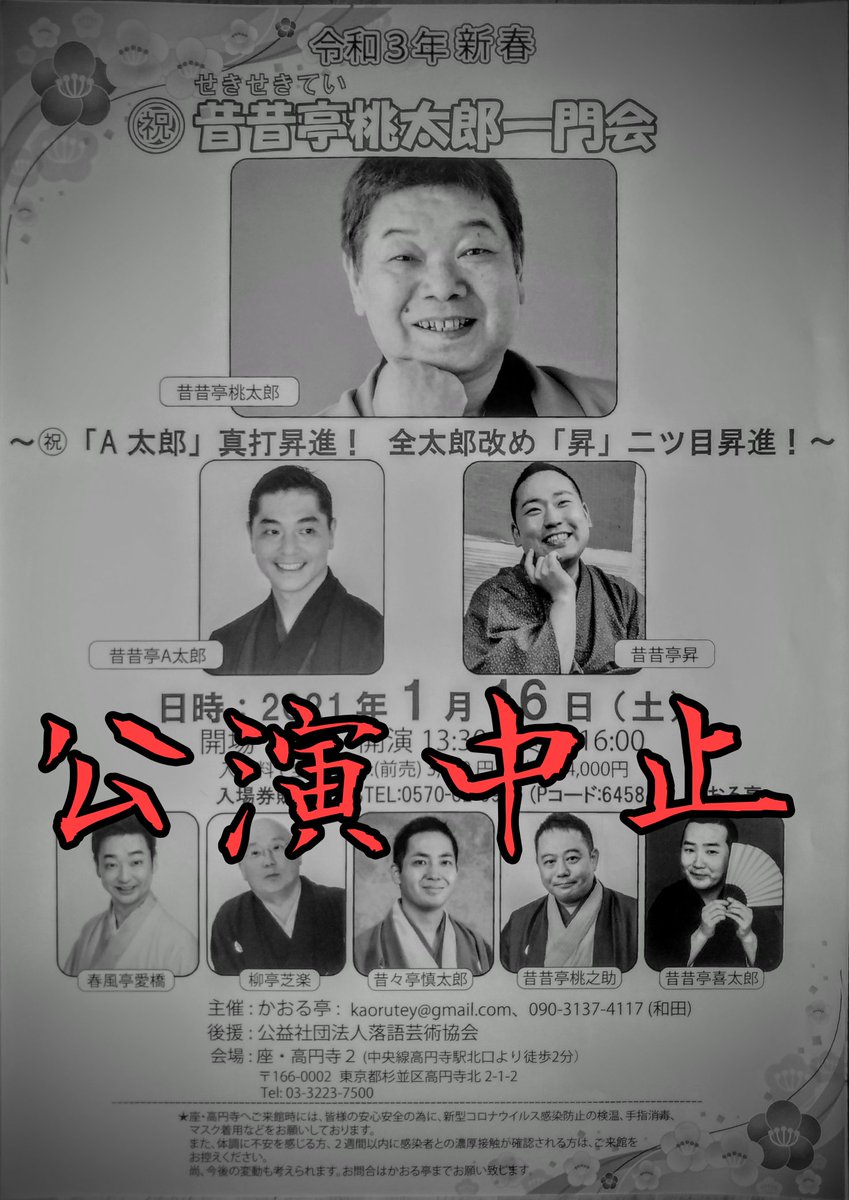 令和3年新春
せきせきてい
㊗昔昔亭桃太郎一門会
昔昔亭桃太郎
～㊗「A太郎」真打昇進! 全太郎改め「昇」二ツ目昇進!～
昔昔亭A太郎
昔昔亭昇
日時:2021年1月16日(土)
開場 開演 13:30 16:00
(前売) 4,000円
入場券 TEL:0570- (Pコード:6458
公演中止
春風亭愛橋
柳亭芝楽
昔々亭慎太郎
昔昔亭桃之助
昔昔亭喜太郎
主催:かおる亭: kaorutey@gmail.com、090-3137-4117 (和田)
後援:公益社団法人落語芸術協会
会場:座・高円寺2 (中央線高円寺駅北口より徒歩2分)
〒166-0002 東京都杉並区高円寺北 2-1-2
Tel: 03-3223-7500
★座・高円寺へご来館時には、皆様の安心安全の為に、新型コロナウイルス感染防止の検温、手指消毒、
マスク着用などをお願いしております。
また、体調に不安を感じる方、2週間以内に感染者との濃厚接触が確認される方は、ご来館を
お控えください。
尚、今後の変動も考えられます。お問合はかおる亭までお願い致します。